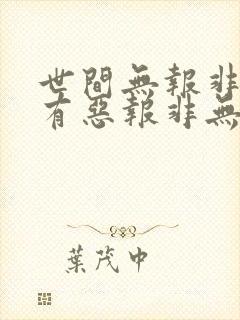 世間無報非
有惡報非無
葉茂中